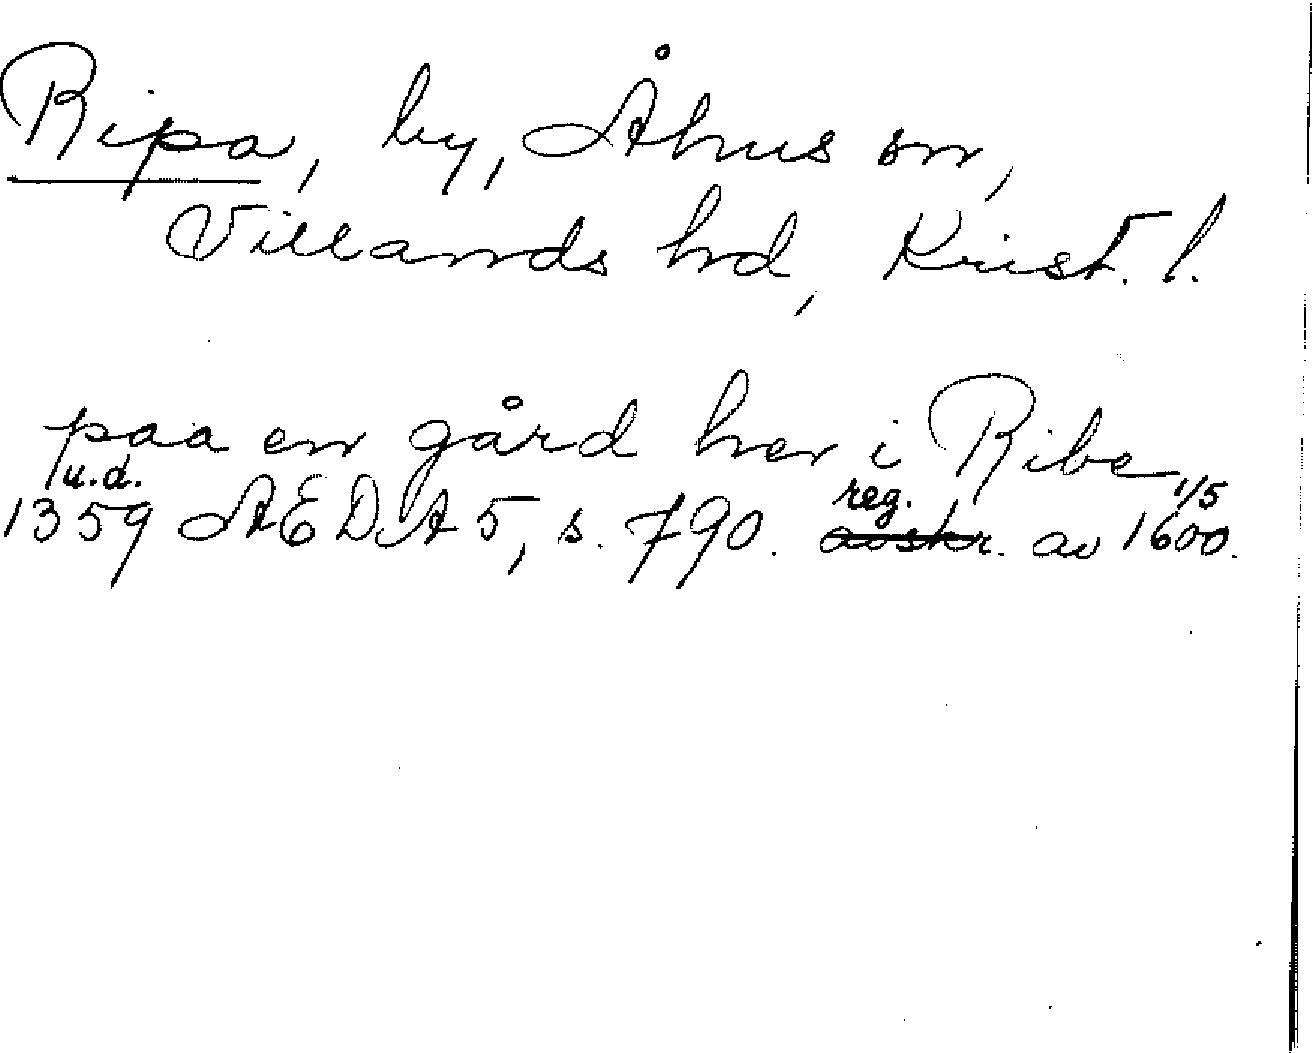 Ripa, by, Åhus sn,
Villands hd, Krist. l.
paa en gård her i Ribe
u.d. reg. 1/5
1359 AEDA 5, s. 790. avskr. av 1600.